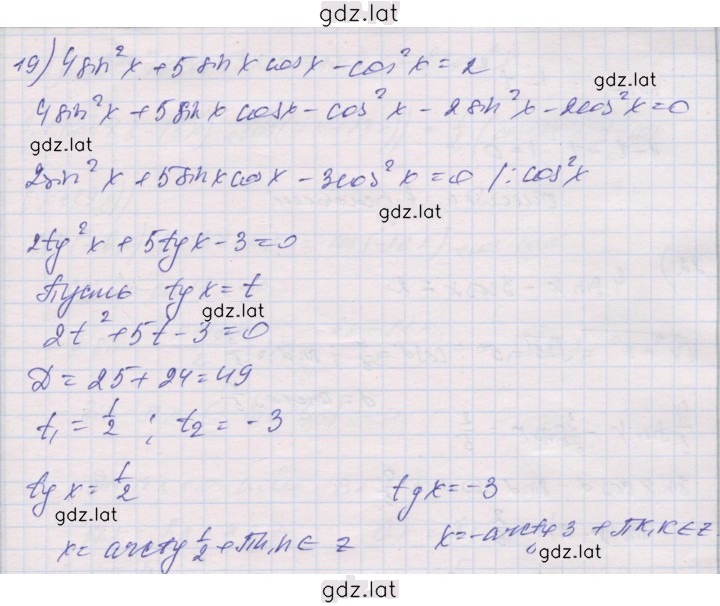 gdz.lat
19) 4sin²x + 5sinx cosx - cos²x = 2
gdz.lat
4sin²x + 5sinx cosx - cos²x - 2sin²x - 2cos²x = 0
gdz.lat
2sin²x + 5sinx cosx - 3cos²x = 0 /: cos²x
gdz.lat
2tg²x + 5tgx - 3 = 0
Пусть tgx = t
gdz.lat
2t² + 5t - 3 = 0
D = 25 + 24 = 49
t₁ = 1/2 ; t₂ = -3
tgx = 1/2 tgx = -3
gdz.lat
x = arctg 1/2 + πn, n ∈ z x = -arctg 3 + πk, k ∈ z
gdz.lat
gdz.lat